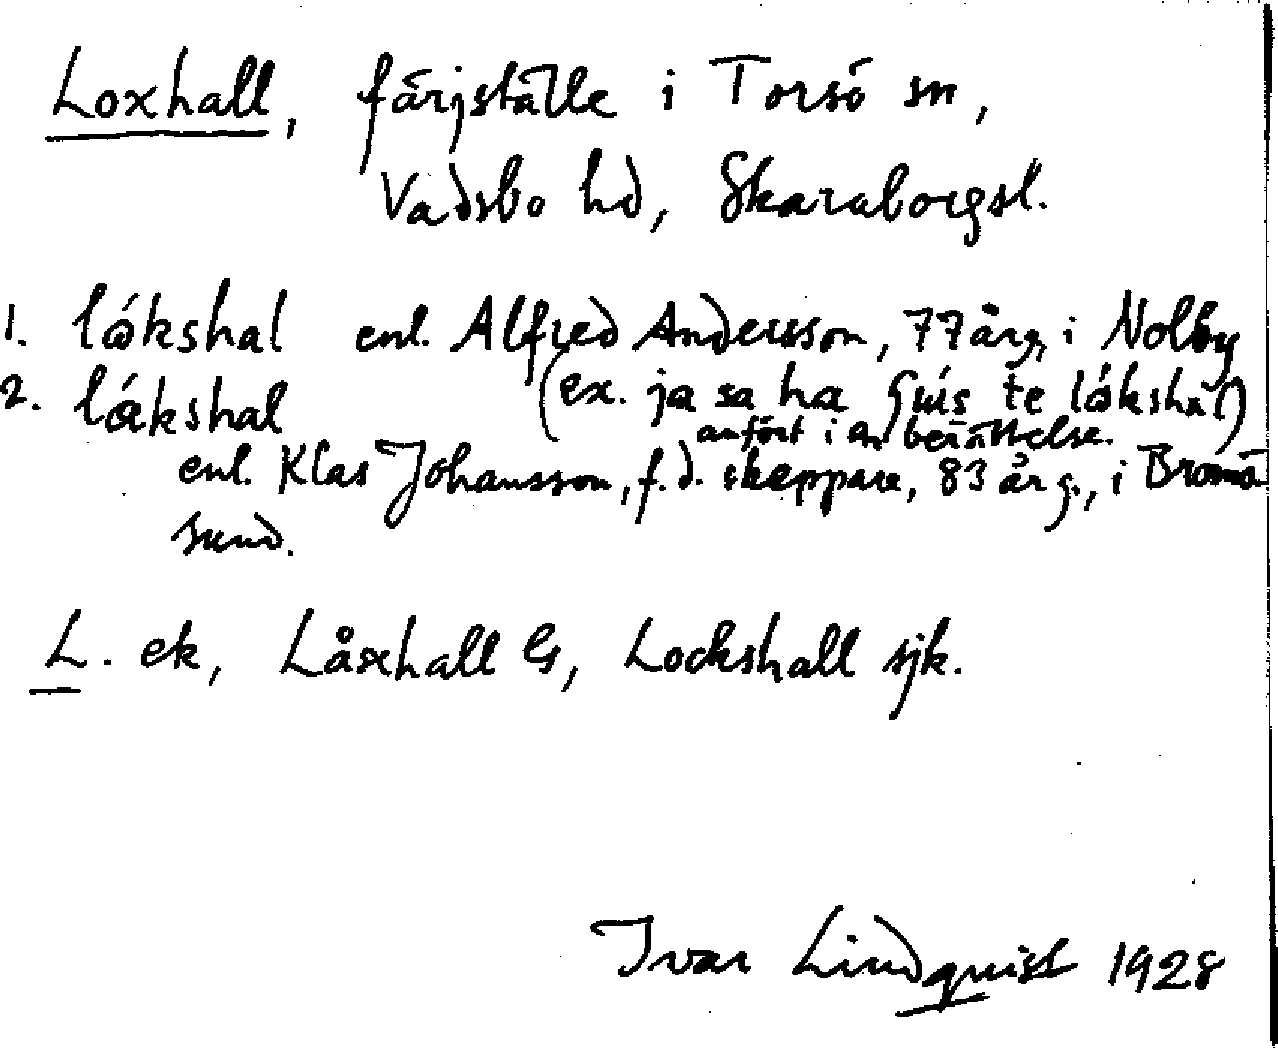 Loxhall, färjställe i Torsö sn,
Vadsbo hd, Skaraborgsl.
1. lókshal enl. Alfred Andersson, 77 årg, i Nolby
2. lákshal (ex. ja sa ha te lókshal)
anfört i en berättelse.
enl. Klas Johansson, f.d. skeppare, 83 årg., i Bromö
sund.
L. ek, Låxhall G, Lockshall sjk.
Ivar Lindquist 1928